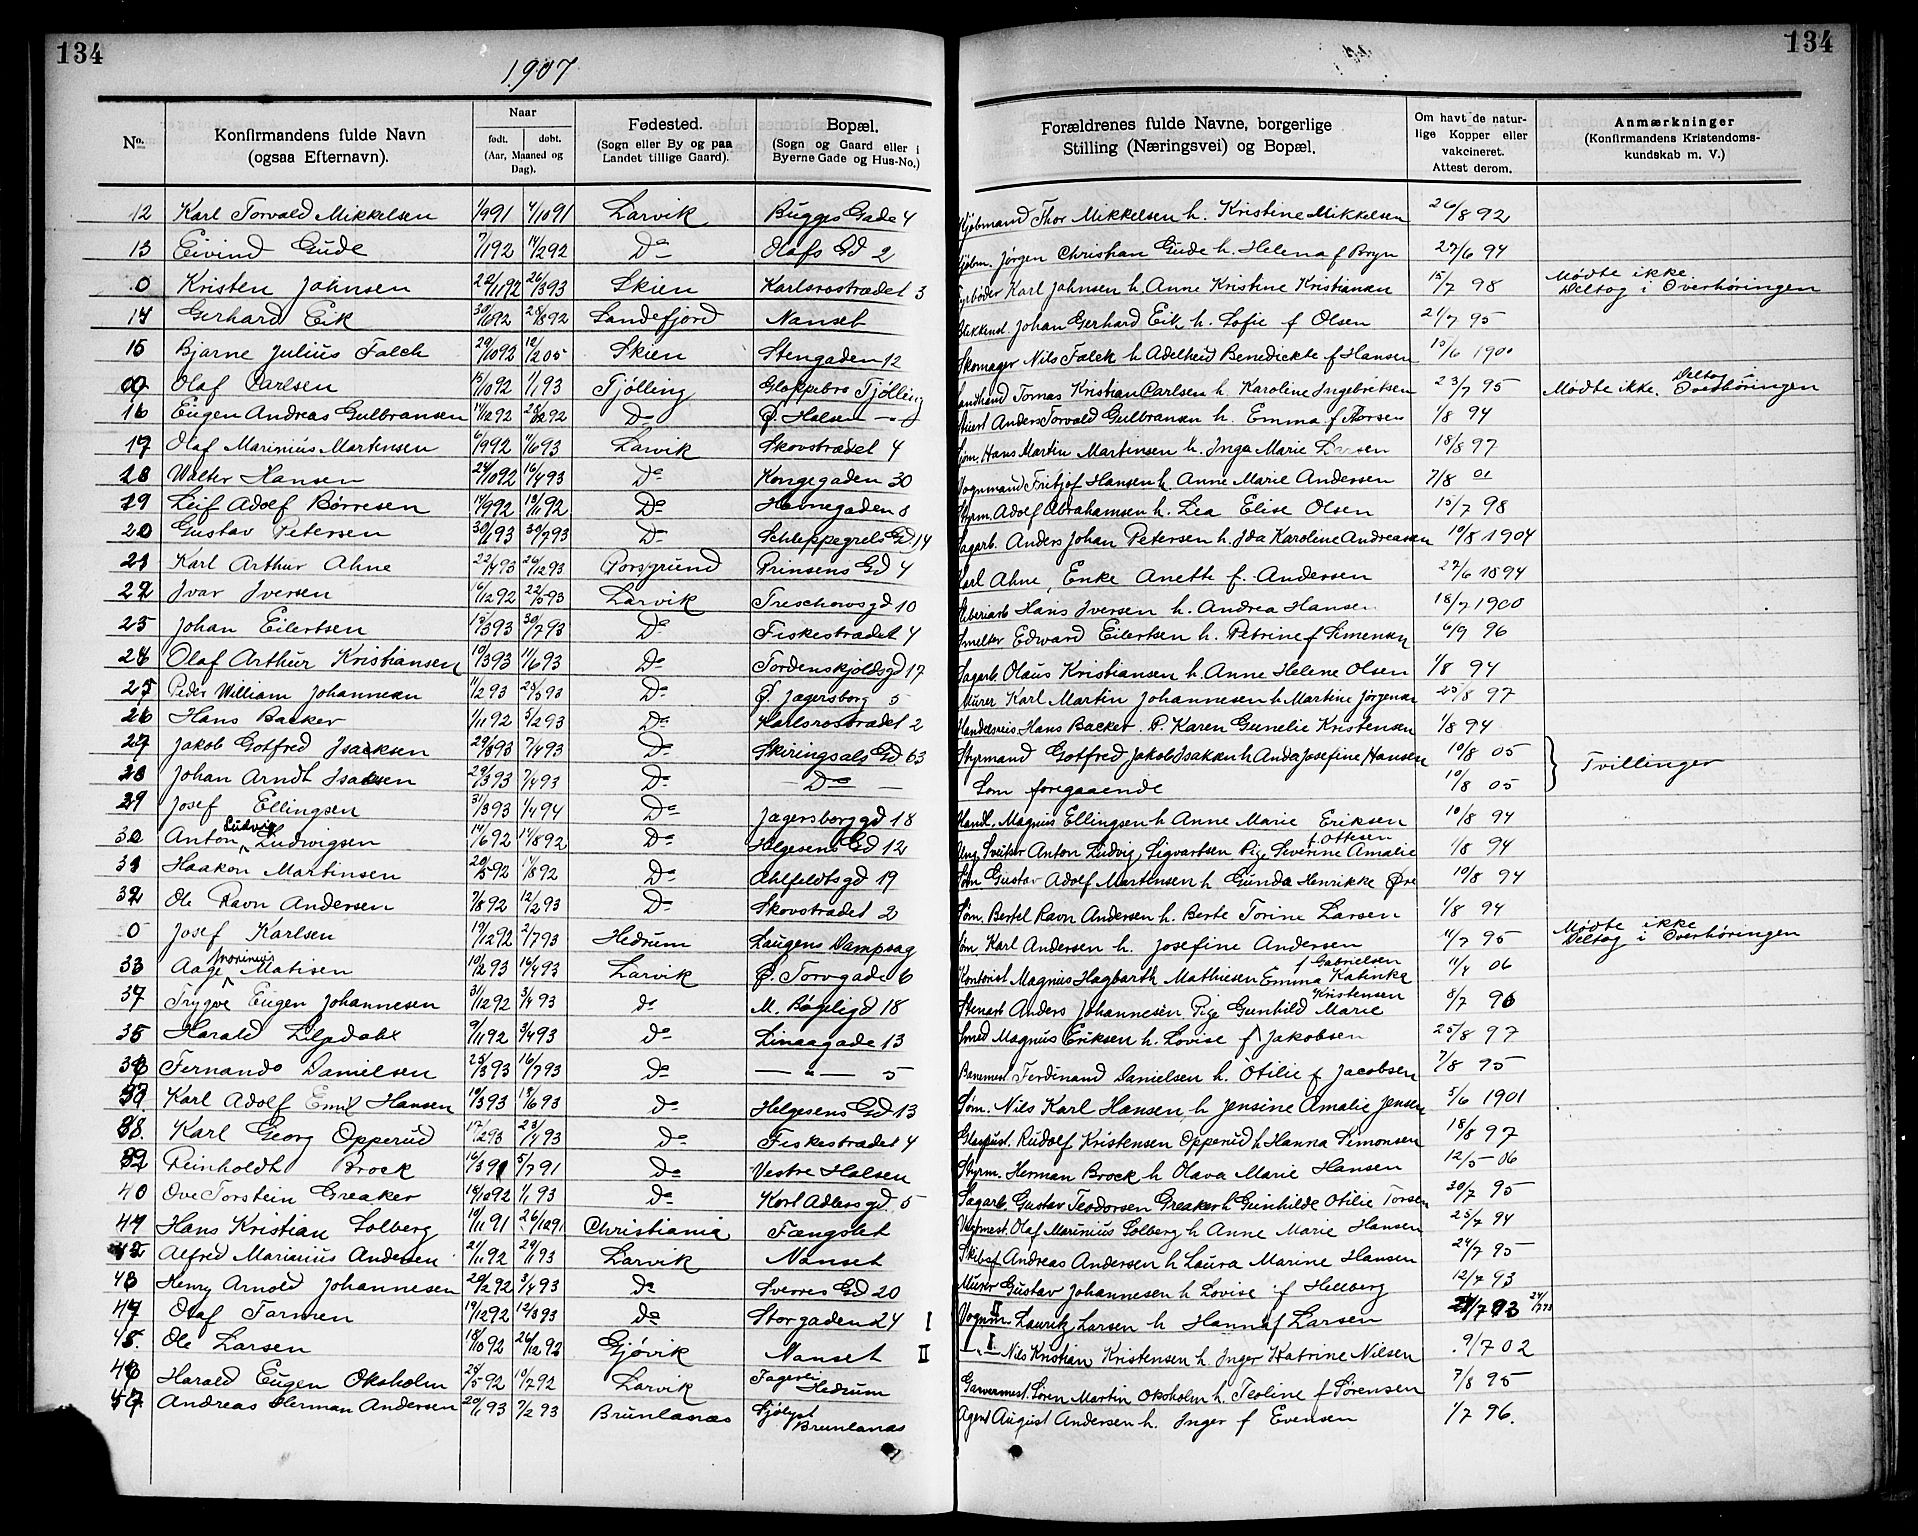 134
134
1907
No.
Konfirmandens fulde Navn
(ogsaa Efternavn).
Naar
født. døbt.
(Aar, Maaned og Dag).
Fødested.
(Sogn eller By og paa
Landet tillige Gaard).
Bopæl.
(Sogn og Gaard eller i
Byerne Gade og Hus-No.)
Forældrenes fulde Navne, borgerlige
Stilling (Næringsvei) og Bopæl.
Om havt de natur-
lige Kopper eller
vakcineret.
Attest derom.
Anmærkninger
(Konfirmandens Kristendoms-
kundskab m. V.)
12 Karl Torvald Mikkelsen 1/9 91 4/10 91 Larvik Bugges Gade 4 Kjøbmand Thor Mikkelsen h. Kristine Mikkelsen 26/8 92
13 Eivind Gude 7/1 92 14/2 92 Do Olafs Gd 2 Kjøbm. Jørgen Christian Gude h. Helena f Bryn 27/6 94
0 Kristen Johnsen 22/11 92 26/3 93 Skien Karlsrostrædet 3 Fyrbøder Karl Johnsen h. Anne Kristine Kristiansen 15/7 98 Mødte ikke. Deltog i Overhøringen
14 Gerhard Eik 30/6 92 28/8 92 Sandefjord Nanset Blikkensl. Johan Gerhard Eik h. Sofie f Olsen 21/7 95
15 Bjarne Julius Falck 29/10 92 12/2 05 Skien Stengaden 12 Skomager Nils Falck h Adelheid Benedickte f Hansen 15/6 1900
0 Olaf Carlsen 15/10 92 1/1 93 Tjølling Gloppebro Tjølling Landhand Tomas Kristian Carlsen h. Karoline Ingebretsen 23/7 95 Mødte ikke. Deltog i Overhøringen
16 Eugen Andreas Gulbransen 14/12 92 Do Ø. Halsen Stuert Anders Torvald Gulbransen h. Emma f Thorsen 1/8 94
17 Olaf Marinius Martensen 6/9 92 11/6 93 Larvik Skovstrædet 4 Søm. Hans Martin Martinsen h. Inga Marie Larsen 18/8 97
18 Walter Hansen 24/10 92 16/4 93 Do Kongegaden 30 Vognmand Fritjof Hansen h. Anne Marie Andersen 7/8 01
19 Leif Adolf Børresen 14/9 92 13/11 92 Do Havnegaden 8 Styrm. Adolf Abrahamsen h. Lea Elise Olsen 15/7 98
20 Gustav Petersen 30/1 93 30/7 93 Do Schleppegrels Gd 14 Sagarb. Anders Johan Petersen h. Ida Karoline Andreasen 10/8 1904
21 Karl Arthur Ahne 22/4 93 26/12 93 Porsgrund Prinsens Gd 4 Karl Ahne, Enke Aneth f. Andersen 27/6 1894
22 Ivar Iversen 6/12 92 22/5 93 Larvik Treschowsgd 10 Støberiarb Hans Iversen h. Andrea Hansen 18/7 1900
23 Johan Eilertsen 15/3 93 30/7 93 Do Fiskestrædet 4 Smelter Edward Eilertsen h. Petrine f Simensen 6/9 96
24 Olaf Arthur Kristiansen 10/3 93 11/6 93 Do Tordenskjoldsgd 17 Sagarb. Olaus Kristiansen h. Anne Helene Olsen 1/8 94
25 Peder William Johannesen 11/2 93 28/5 93 Do Ø. Jagersborg 5 Murer Karl Martin Johannesen h Martine Jørgensen 25/8 97
26 Hans Backer 1/11 92 5/2 93 Do Karlsrostrædet 2 Handelsreis Hans Backer. P. Karen Gunelie Kristensen 1/8 94
27 Jakob Gotfred Isaksen 29/3 93 7/4 93 Do Skiringsals Gd 63 Styrmand Gotfred Jakob Isaksen h Anda Josefine Hansen 10/8 05
28 Johan Arndt Isaksen 29/3 93 7/4 93 Do Do Som foregaaende 10/8 05 Tvillinger
29 Josef Ellingsen 31/3 93 1/4 94 Do Jagersborg gd 18 Handl. Magnus Ellingsen h Anne Marie Eriksen 10/8 94
30 Anton Ludvig Ludwigsen 14/6 92 14/8 92 Do Helgesens Gd 12 Ung. Sveitser Anton Ludvig Sigvartsen Pige Severine Amalie f Ottesen 1/8 94
31 Haakon Martinsen 20/5 92 14/8 92 Do Ahlfeldtsgd 19 Søm Gustav Adolf Martensen h Gunda Henrikke Øre 10/8 94
32 Ole Ravn Andersen 7/8 92 12/2 93 Do Skovstrædet 2 Søm. Bertel Ravn Andersen h. Berte Torine Larsen 1/8 94
0 Josef Karlsen 19/12 92 2/7 93 Hedrum Laugens Dampsag Søm Karl Andersen h. Josefine Andersen 11/7 95 Mødte ikke Deltog i Overhøringen
33 Aage Matisen 10/2 93 16/4 93 Larvik Ø. Torvgade 6 Kontorist Magnus Hagbarth Mathiesen Emma Katinka f Gabrielsen 11/4 06
34 Trygve Eugen Johannesen 31/12 92 3/4 93 do M. Bøyeligd 18 Stenarb Anders Johannesen Pige Gunhild Marie Kristensen 8/7 96
35 Harald Liljedahl 9/11 92 3/4 93 do Linaagade 13 Smed Magnus Eriksen h. Lovise f Jakobsen 25/8 97
36 Fernando Danielsen 25/3 93 16/7 93 do — " — 5 Banemest Ferdinand Danielsen h. Otilie f Jacobsen 7/8 95
37 Karl Adolf Emil Hansen 10/3 93 18/6 93 do Helgesens Gd 13 Søm. Nils Karl Hansen h Jensine Amalie Jensen 5/6 1901
38. Karl Georg Opperud 17/2 93 23/4 93 do Fiskestrædet 4 Glaspust. Rudolf Kristensen Opperud h Hanna Simonsen 18/8 97
39 Reinholdt Brock 16/3 91 5/7 91 do Vestre Halsen Styrm. Herman Brock h Olava Marie Hansen 12/5 06
40 Ove Torstein Greaker 18/10 92 1/1 93 do Kort Adlers gd 5 Sagarb Gustav Teodorsen Greaker h Gunhilde Otilie Torsen 30/7 95
41 Hans Kristian Solberg 10/11 91 26/12 91 Christiania Fængslet Vagtmest. Olaf Marinius Solberg h Anne Marie Hansen 25/7 94
42 Alfred Marinius Andersen 21/11 92 29/1 93 Larvik Nanset Skibsf Andreas Andersen h Laura Marine Hansen 24/7 95
43 Henry Arnold Johannesen 20/12 92 3/4 93 do Sverres Gd 20 Murer Gustav Johannesen h Lovise f Hellberg 12/7 93
44 Olaf 19/12 92 12/3 93 do Storgaden 24 I Vognm II Lauritz Larsen h Hanna f Larsen 24/7 93
45. Ole Larsen 18/10 92 26/12 92 Gjøvik Nanset II I Nils Kristian Kristensen h. Inger Katrine Nilsen 9/7 02
46 Harald Eugen Oksholm 25/5 92 10/7 92 Larvik Fagerli Hedrum Garvermest. Søren Martin Oksholm h. Teoline f Sørensen 7/8 95
47 Andreas Herman Andersen 20/1 93 7/2 93 Brunlanæs Sjølyst Brunlanæs Agent August Andersen h. Inger f Evensen 1/7 96.